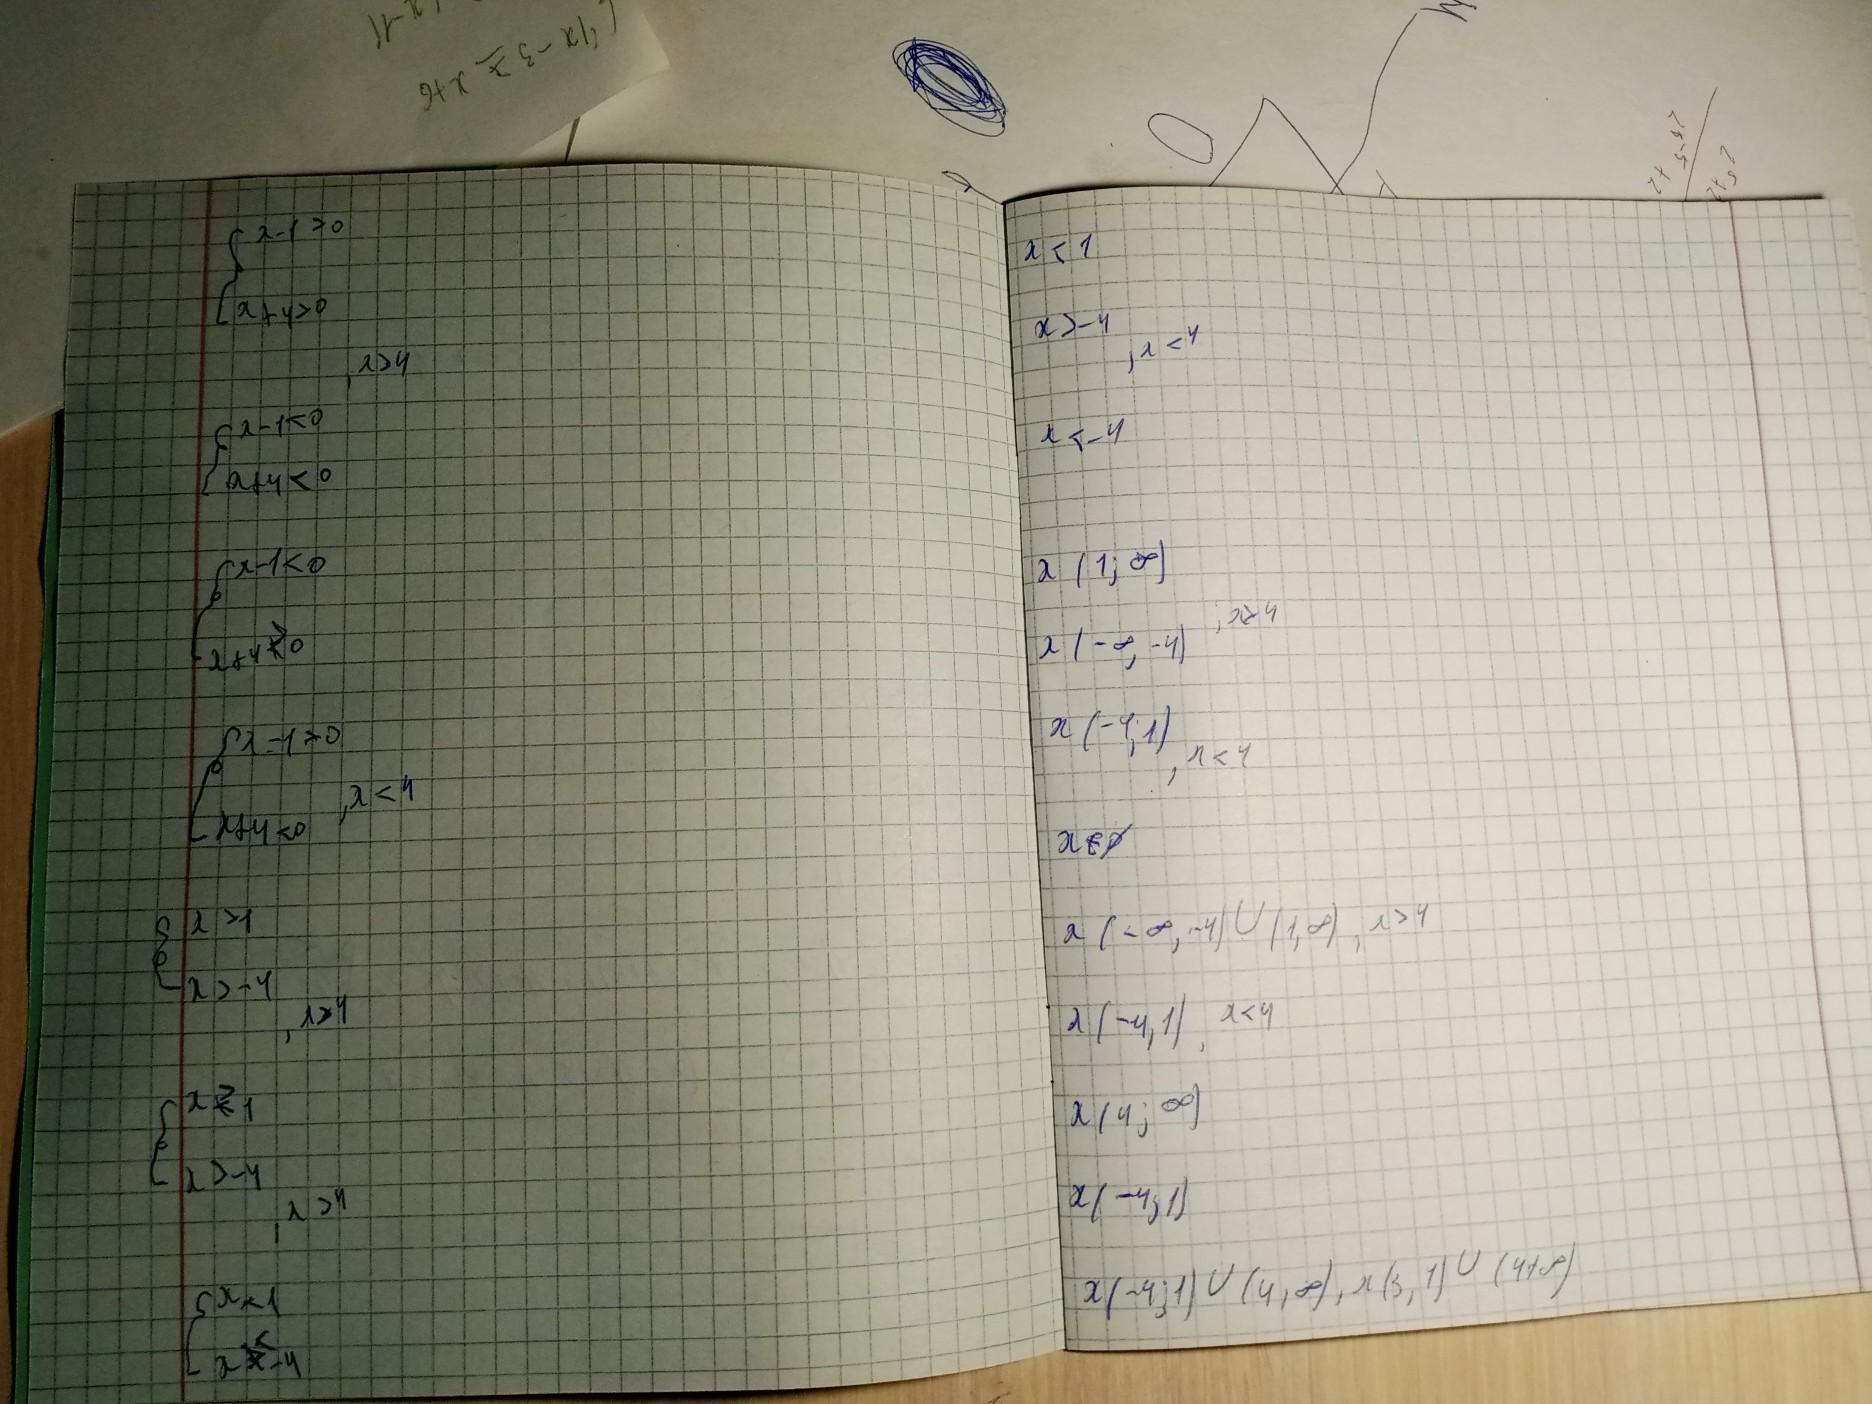 x-1>0
x+4>0
, x>4
x-1<0
x+4<0
x-1<0
x+4>0
x-1>0
x+4<0
, x<4
x>1
x>-4
, x>4
x 1
x>-4
, x>4
x<1
x<-4
x<1
x>-4
, x<4
x<-4
x (1; ∞)
x (-∞, -4)
; x≥4
x (-4; 1)
, x<4
x∈∅
x (-∞, -4) ∪ (1, ∞), x>4
x (-4, 1), x<4
x (4; ∞)
x (-4; 1)
x (-4; 1) ∪ (4, ∞), x (3, 1) ∪ (4+∞)